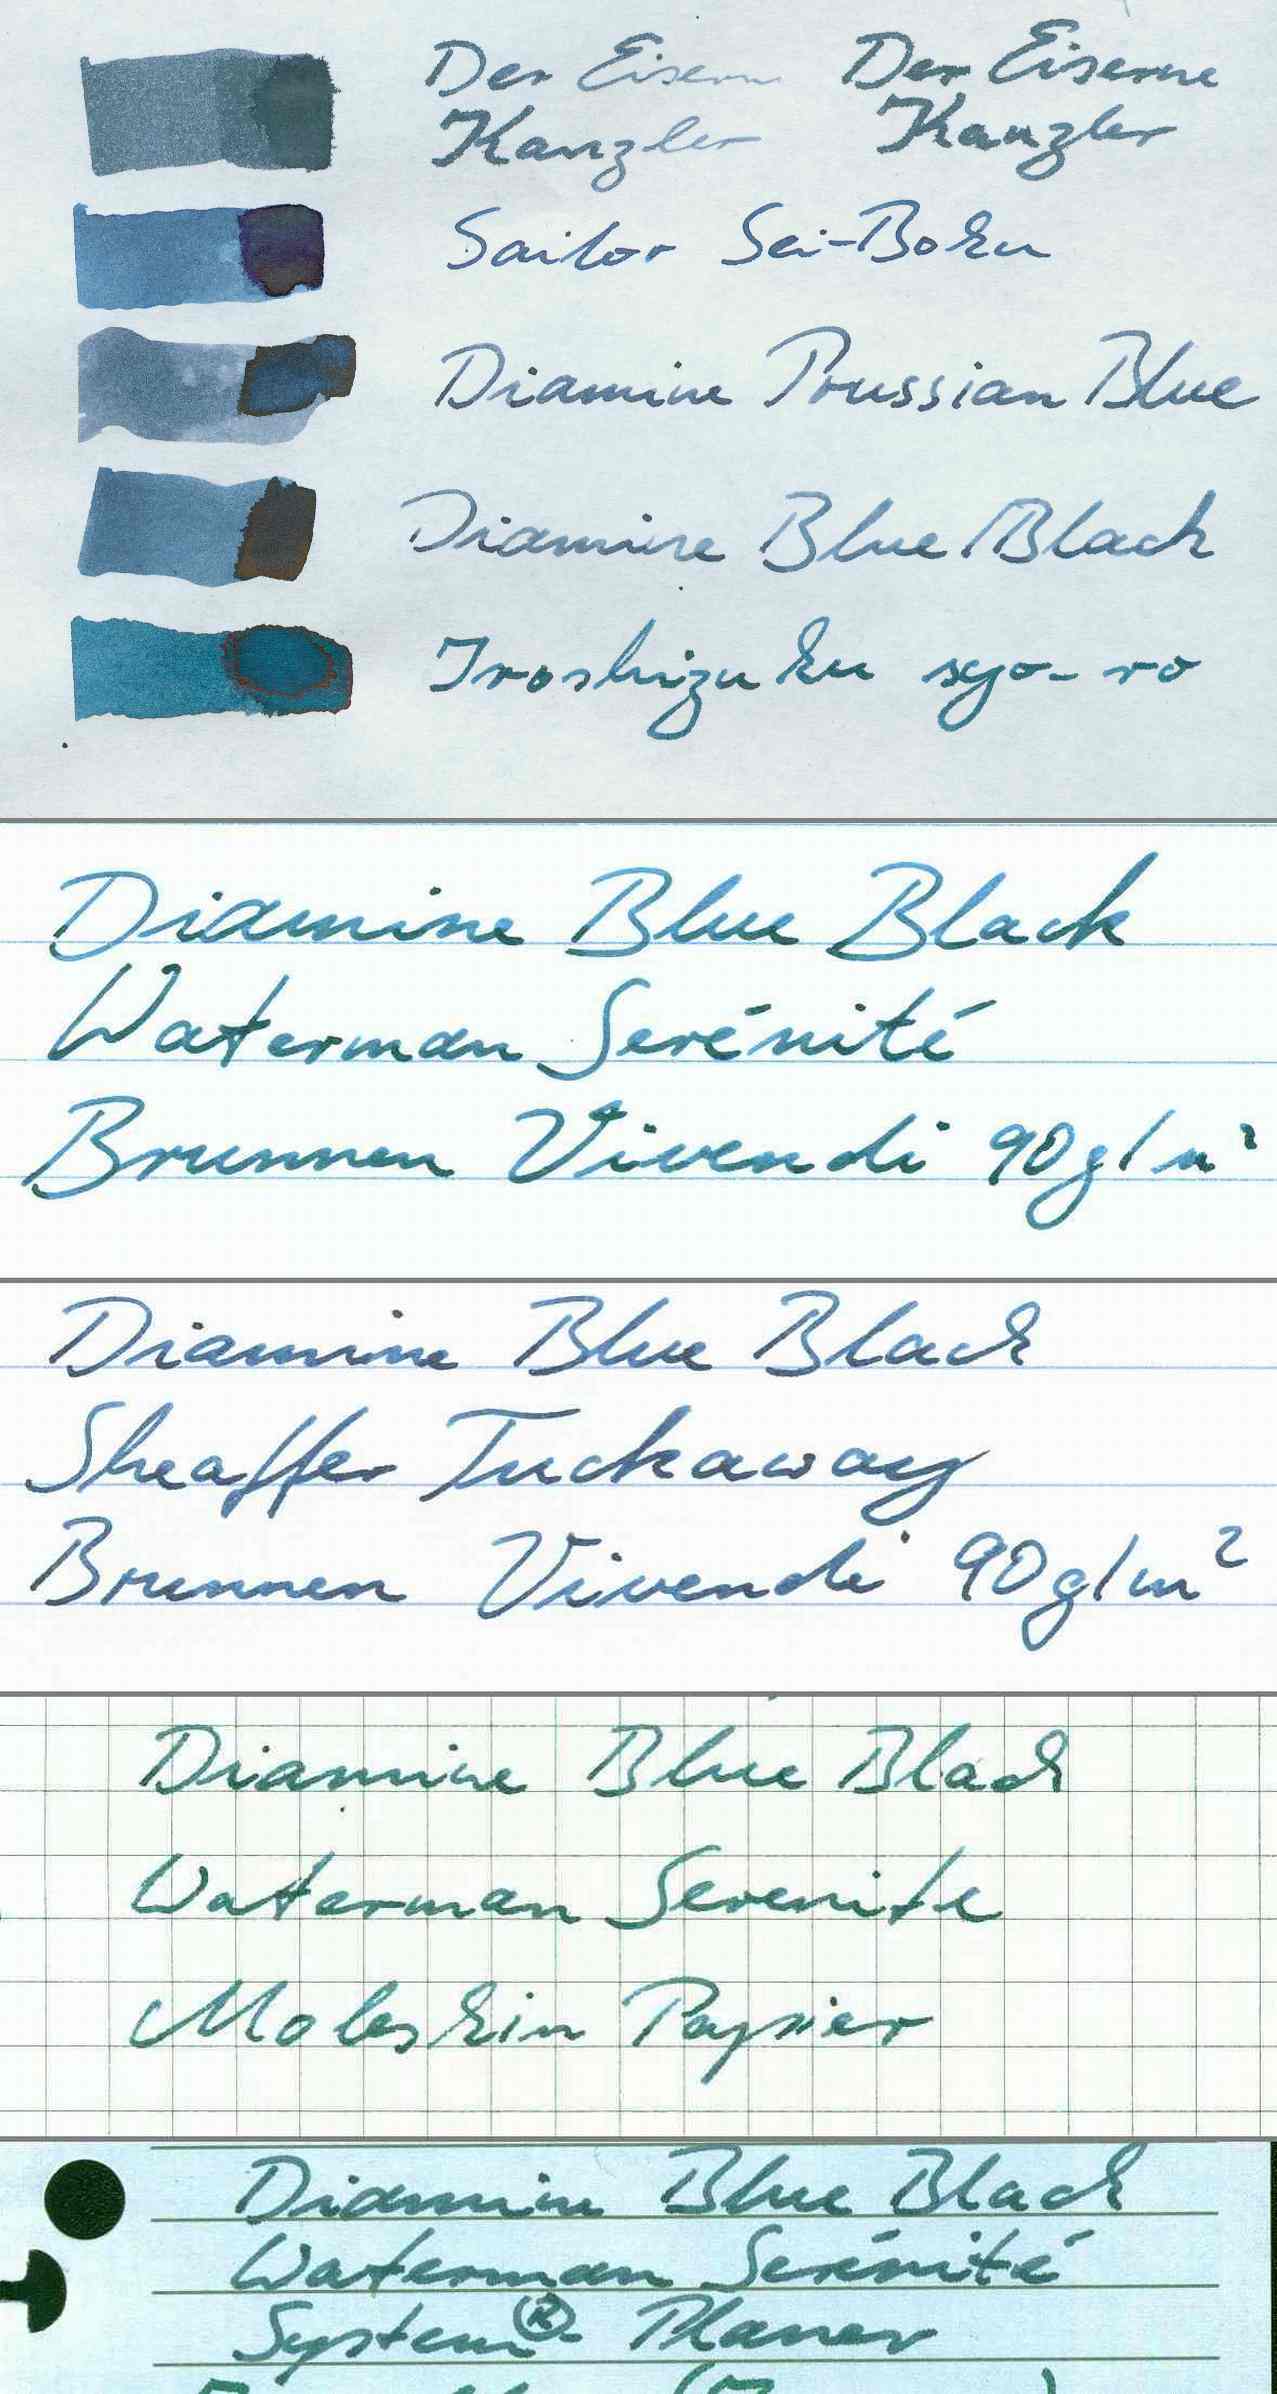 Der Eiserne Der Eiserne
Kanzler Kanzler
Sailor Sei-Boku
Diamine Prussian Blue
Diamine Blue/Black
Iroshizuku syo-ro
Diamine Blue Black
Waterman Serénité
Brunnen Vivendi 90g/m²
Diamine Blue Black
Sheaffer Tuckaway
Brunnen Vivendi 90g/m²
Diamine Blue Black
Waterman Serenite
Moleskin Papier
Diamine Blue Black
Waterman Serénité
System®- Planer